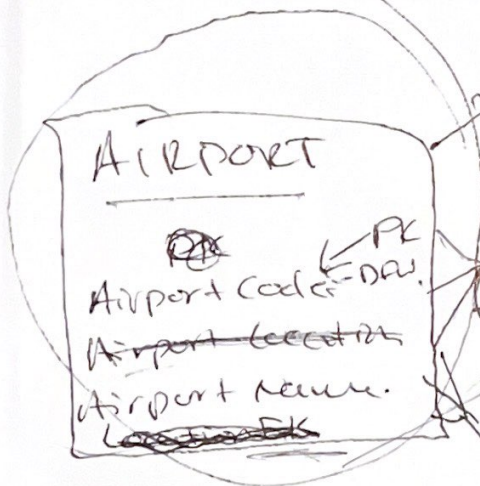 AIRPORT
PK
PK
Airport Code ← DFW.
Airport Location
Airport Name.
Location FK